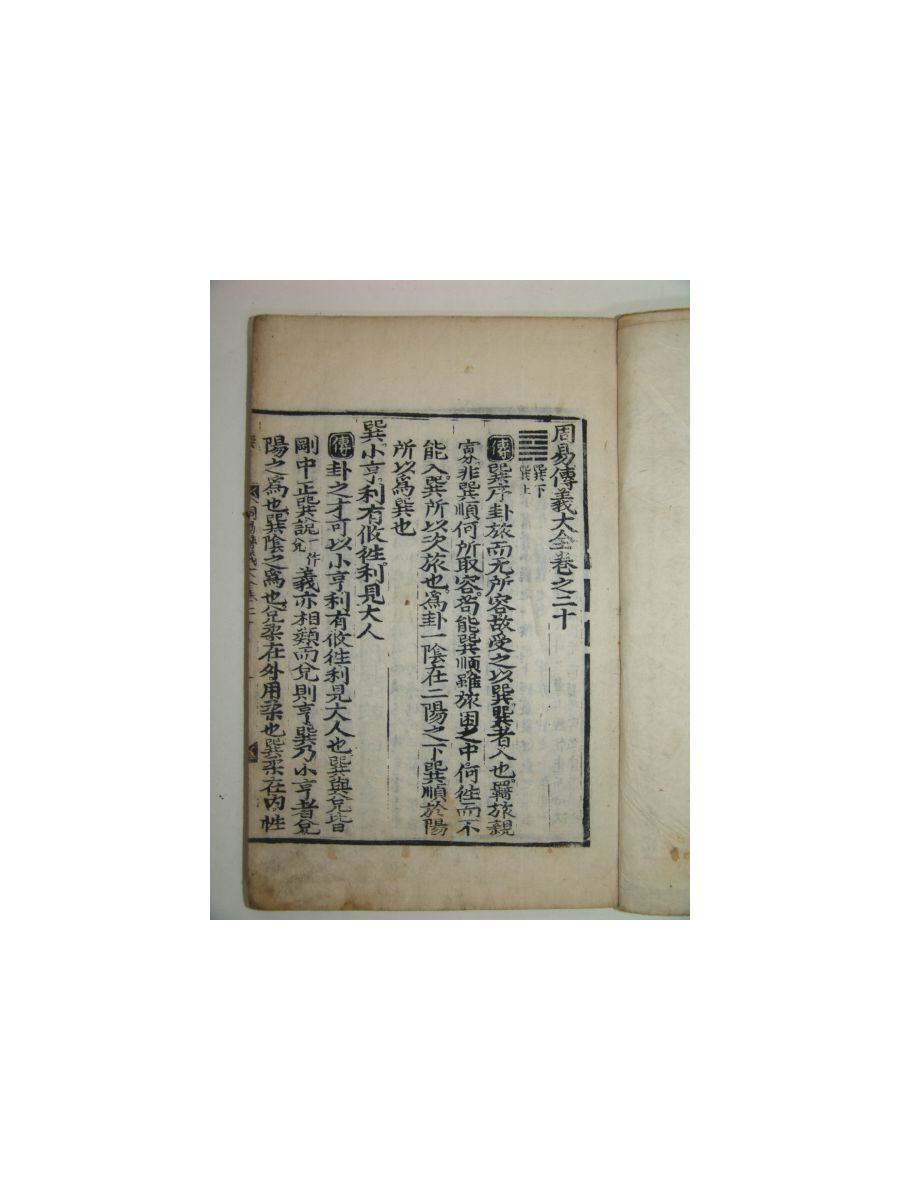 周易傳義大全卷之二十
巽下
巽上
傳 巽序卦旅而无所容故受之以巽巽者入也羇旅親
寡非巽順何所取容苟能巽順雖旅困之中何徃而不
能入巽所以次旅也爲卦一陰在二陽之下巽順於陽
所以爲巽也
巽小亨利有攸徃利見大人
傳 卦之才可以小亨利有攸徃利見大人也巽與兌皆
剛中正巽說一作兌義亦相類而兌則亨巽乃小亨者兌
陽之爲也巽陰之爲也兌柔在外用柔也巽柔在內性